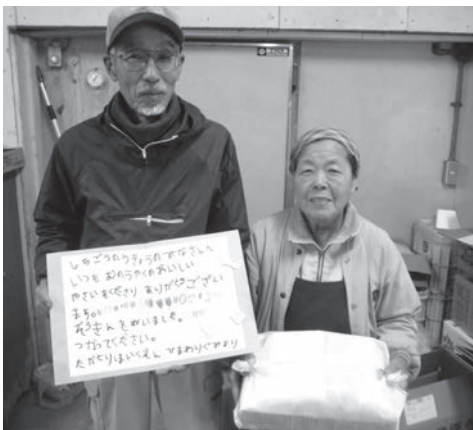 しもごうのうきょうのみなさんへ
いつも むのうやくのおいしい
やさいをくださり ありがとうござい
ます。
ぞうきんをぬいました。
つかってください。
たかとりほいくえん ひまわりぐみより